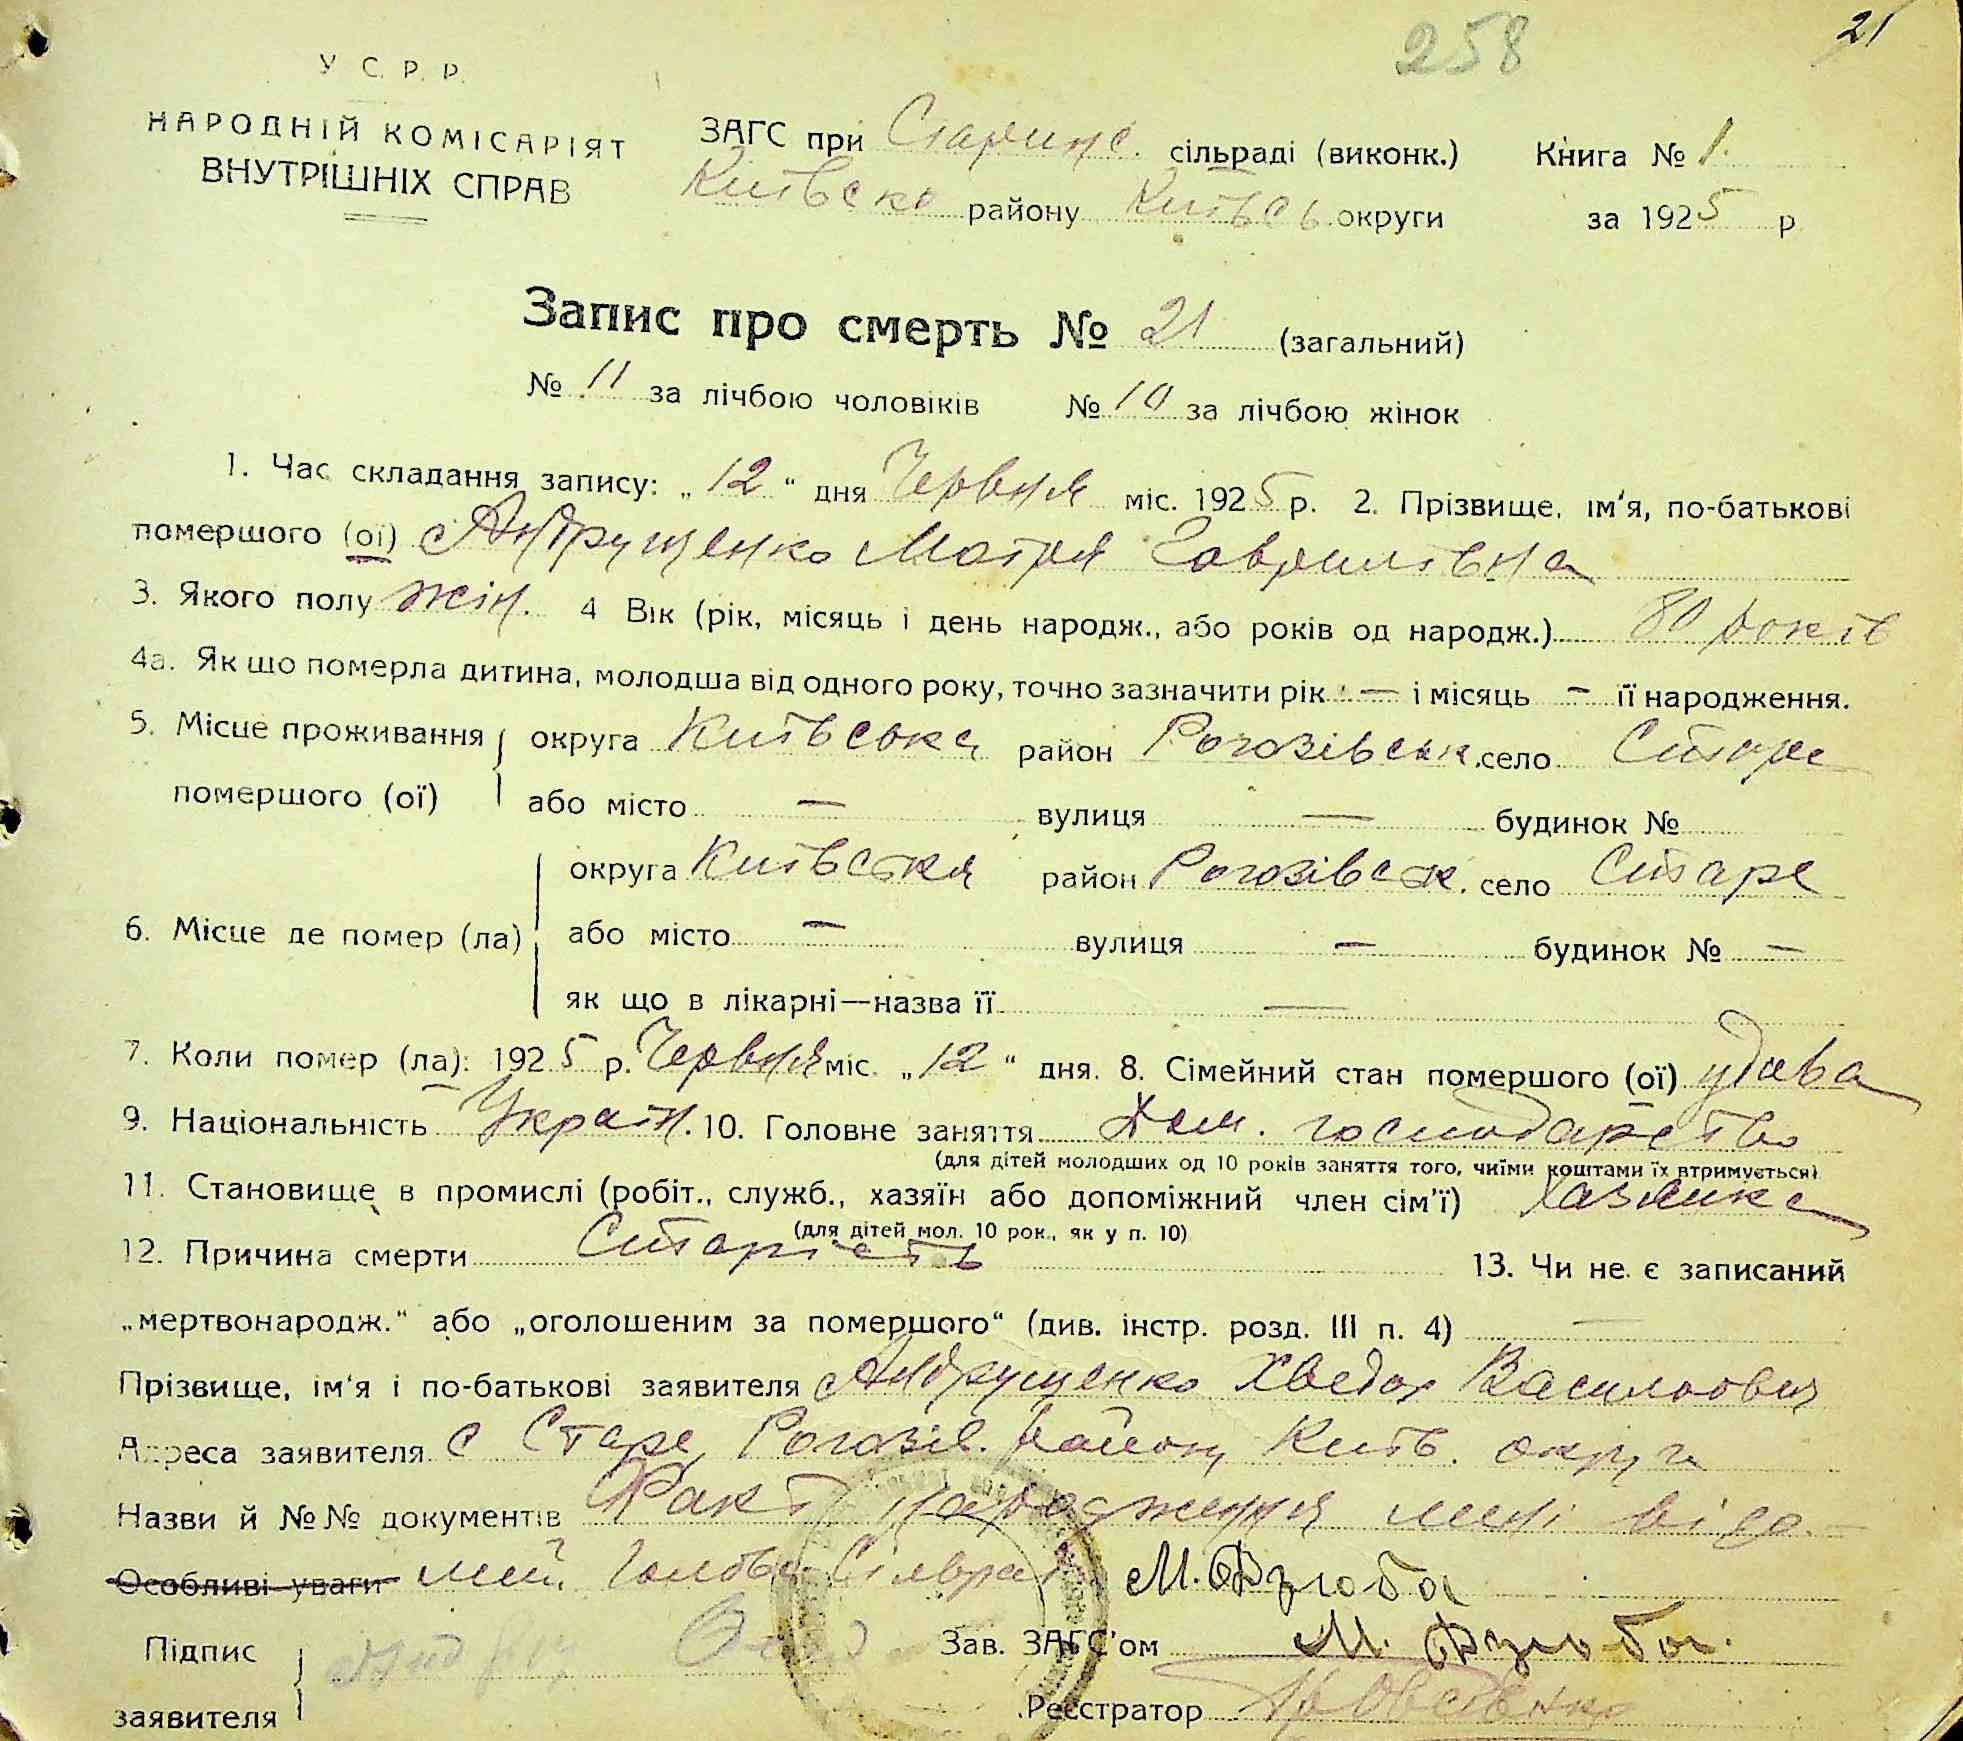 258
21
У С. Р. Р.
НАРОДНІЙ КОМІСАРІЯТ
ВНУТРІШНІХ СПРАВ
ЗАГС при Старинс. сільраді (виконк.) Книга № 1.
Київсько району Київсь округи за 1925 р
Запис про смерть № 21 (загальний)
№ 11 за лічбою чоловіків № 10 за лічбою жінок
1. Час складання запису: „12“ дня Червня міс. 1925 р. 2. Прізвище, ім'я, по-батькові
помершого (ої) Андрущенко Мотря Гаврилівна
3. Якого полу жін. 4 Вік (рік, місяць і день народж., або років од народж.) 80 років
4а. Як що померла дитина, молодша від одного року, точно зазначити рік — і місяць — її народження.
5. Місце проживання округа Київська район Рогозівськ. село Старе
помершого (ої) або місто — вулиця — будинок №
округа Київська район Рогозівськ. село Старе
6. Місце де помер (ла) або місто — вулиця — будинок № —
як що в лікарні—назва її —
7. Коли помер (ла): 1925 р. Червня міс. „12“ дня. 8. Сімейний стан помершого (ої) удова
9. Національність Україн. 10. Головне заняття Дом. господарство
(для дітей молодших од 10 років заняття того, чиїми коштами їх втримується)
11. Становище в промислі (робіт., служб., хазяїн або допоміжний член сім'ї) хазяйка
(для дітей мол. 10 рок., як у п. 10)
12. Причина смерти Старість 13. Чи не є записаний
„мертвонародж.“ або „оголошеним за помершого“ (див. інстр. розд. III п. 4) —
Прізвище, ім'я і по-батькові заявителя Андрущенко Хведор Васильович
Адреса заявителя с Старе, Рогозів. району Київ. округи
Назви й №№ документів Факт народження мені відо-
Особливі уваги мий. Голова Сільради М. Дзюба
Підпис Андрущ Зав. ЗАГС'ом М. Дзюба.
заявителя Реєстратор